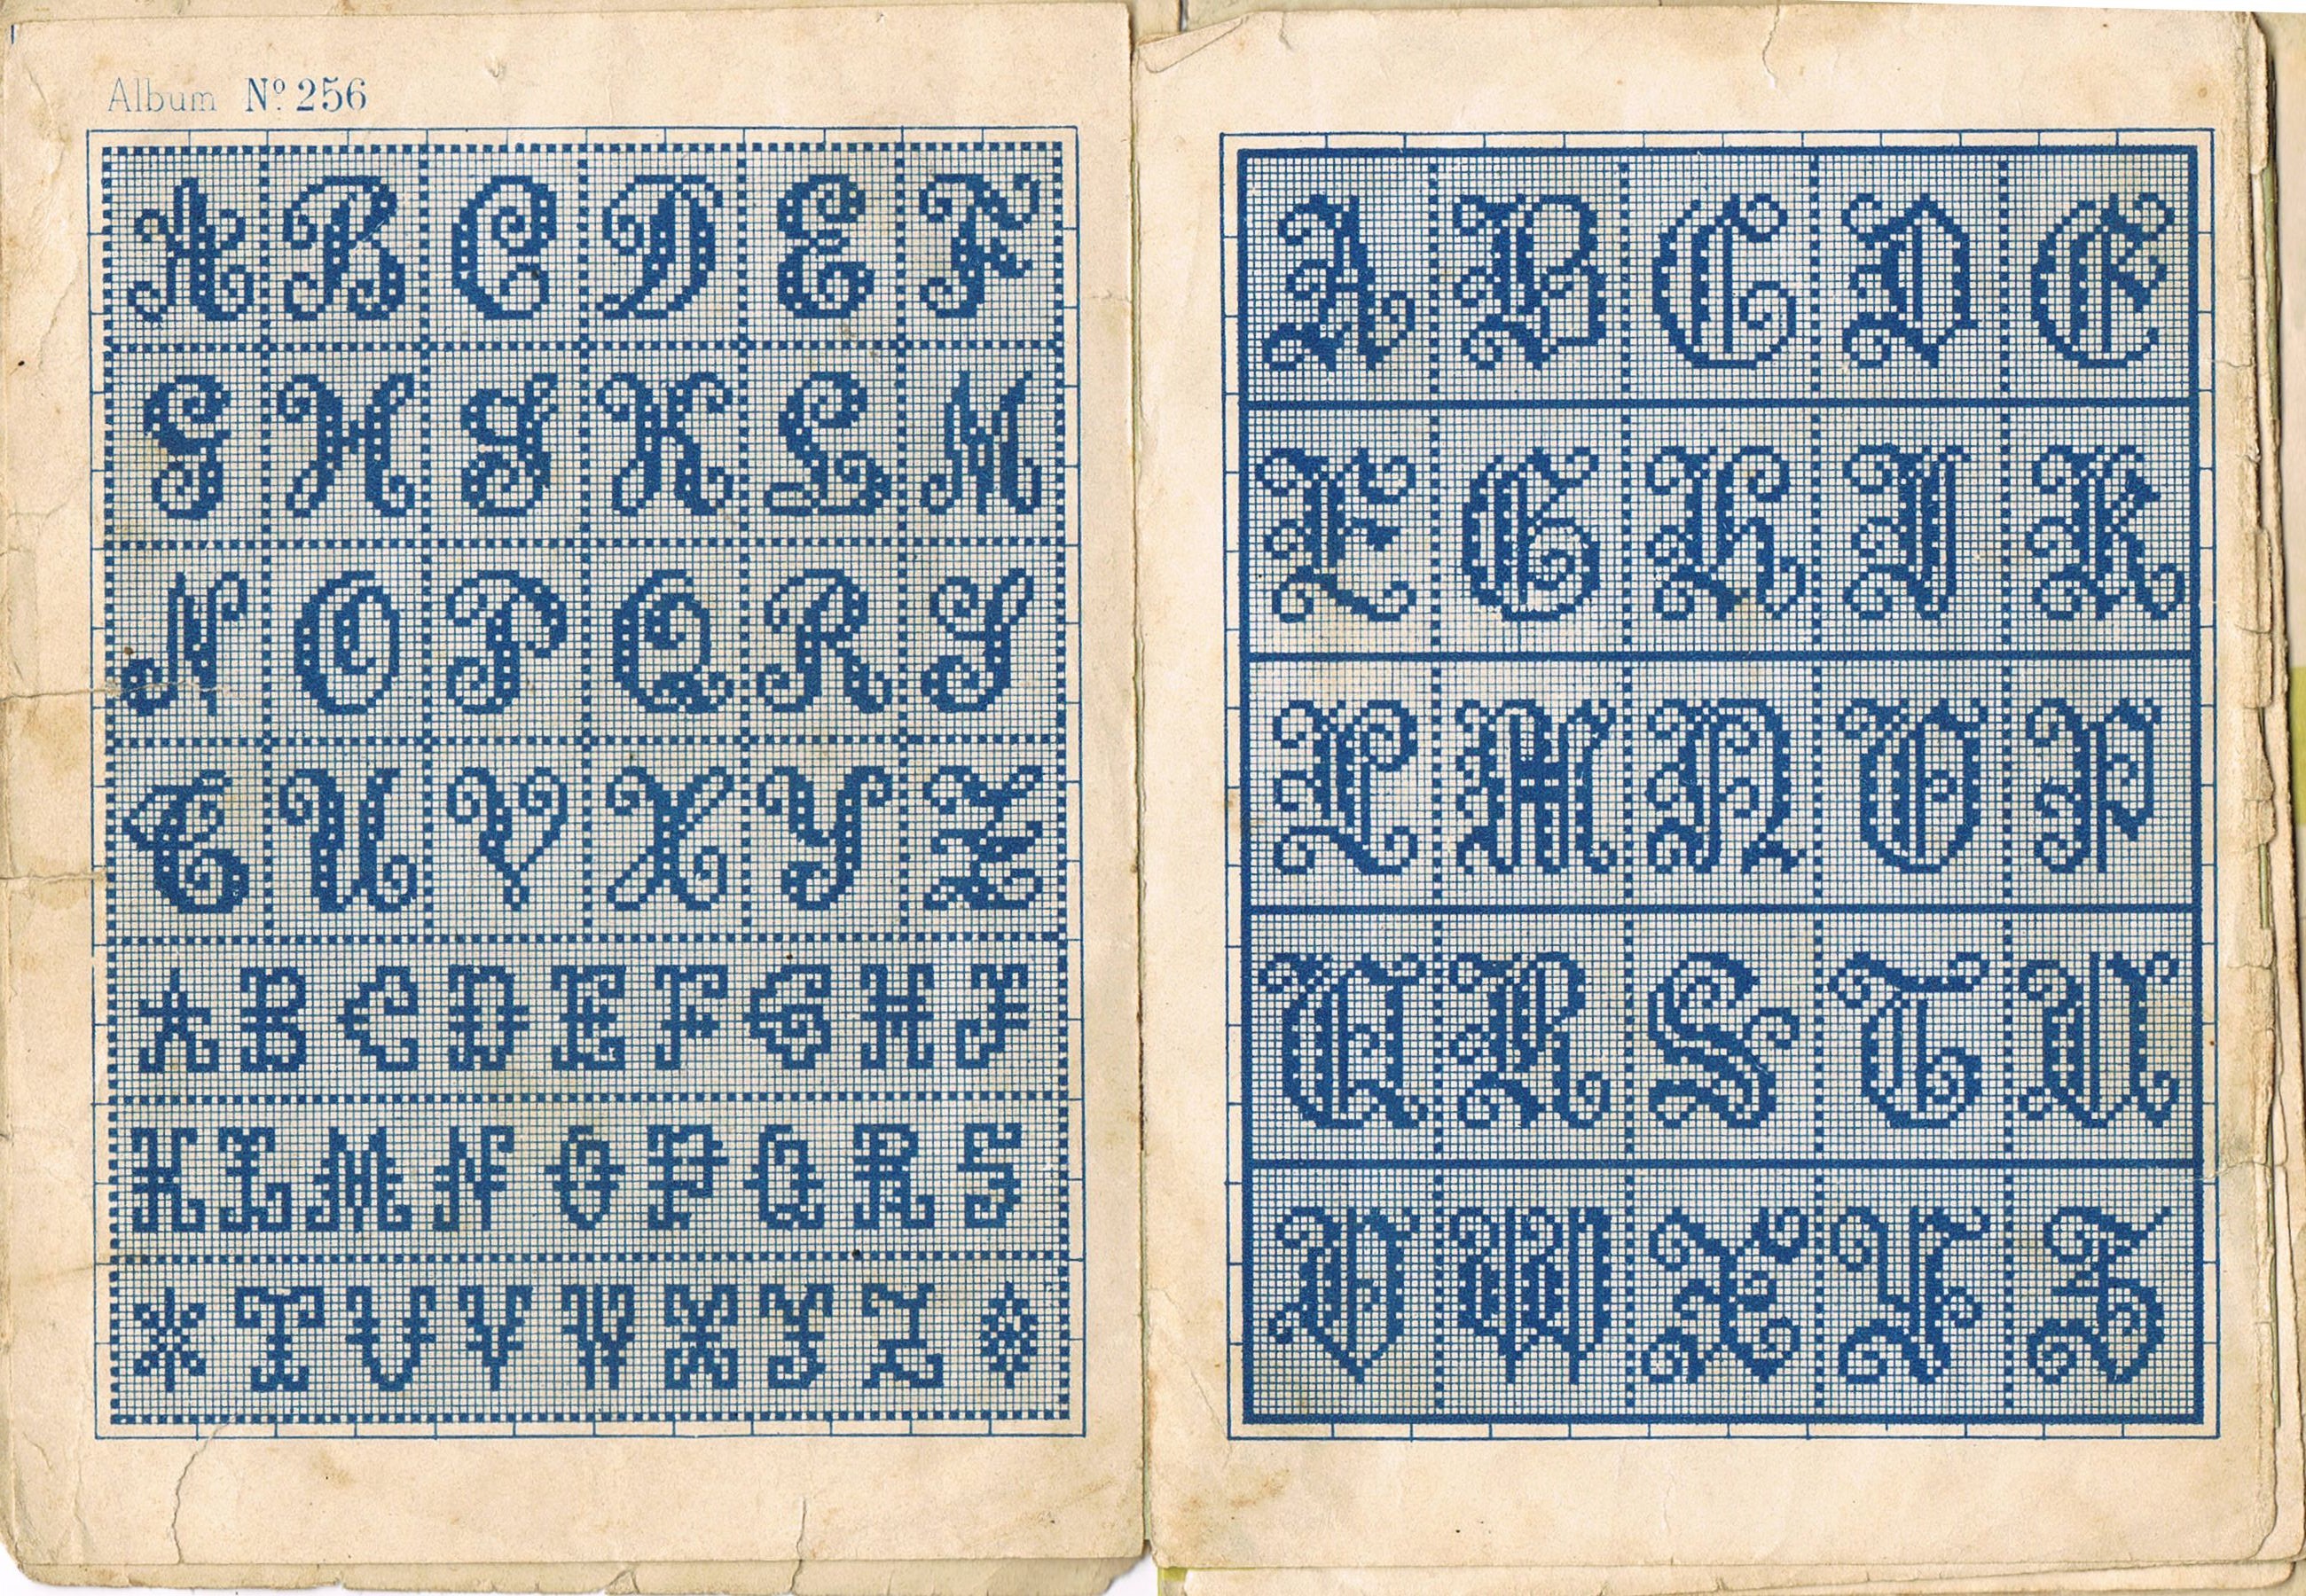 Album Nº 256
A B C D E F
G H I K L M
N O P Q R S
T U V X Y Z
A B C D E F G H I
K L M N O P Q R S
T U V W X Y Z
A B C D E
F G H I K
L M N O P
Q R S T U
V W X Y Z